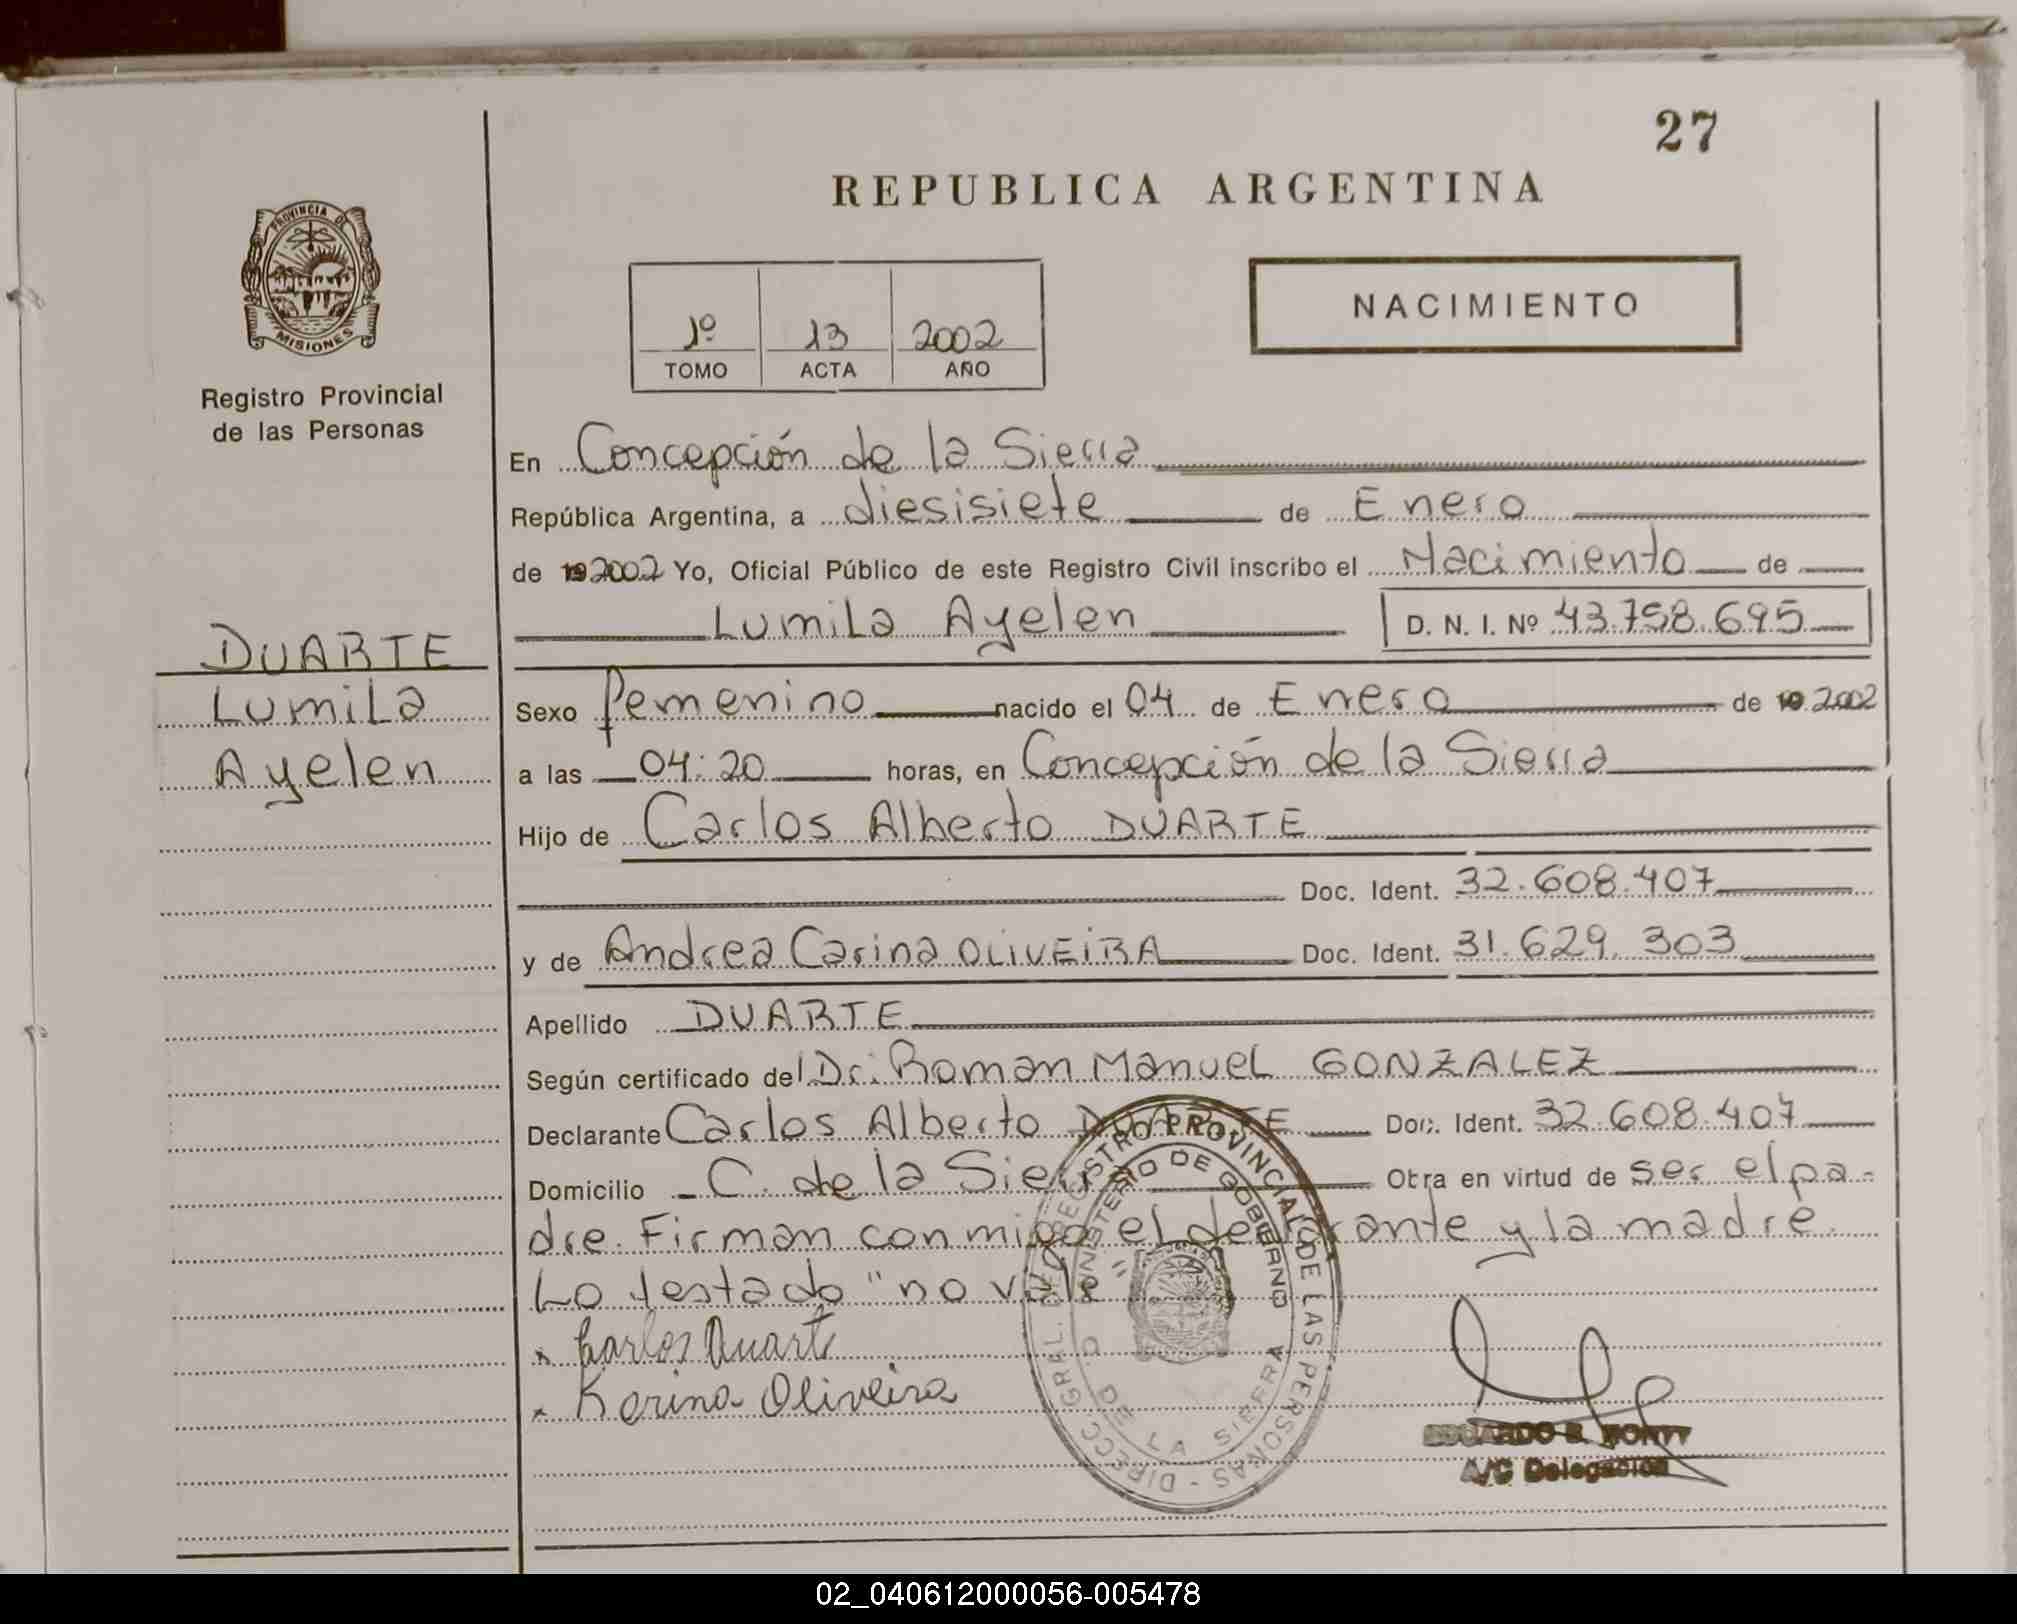 27
REPUBLICA ARGENTINA
PROVINCIA DE
MISIONES
Registro Provincial
de las Personas
1º 13 2002
TOMO ACTA AÑO
NACIMIENTO
En Concepción de la Sierra
República Argentina, a diesisiete de Enero
de 19 2002 Yo, Oficial Público de este Registro Civil inscribo el Nacimiento de
Lumila Ayelen D. N. I. Nº 43.758.695
DUARTE
Lumila
Ayelen
Sexo femenino nacido el 04 de Enero de 19 2002
a las 04:20 horas, en Concepción de la Sierra
Hijo de Carlos Alberto DUARTE
Doc. Ident. 32.608.407
y de Andrea Carina OLIVEIRA Doc. Ident. 31.629.303
Apellido DUARTE
Según certificado del Dr. Roman Manuel GONZALEZ
Declarante Carlos Alberto DUARTE Doc. Ident. 32.608.407
Domicilio C. de la Sierra Obra en virtud de ser el pa-
dre. Firman conmigo el declarante y la madre.
Lo testado "no vale"
x Carlos Duarte
x Karina Oliveira
DIRECC. GRAL. DEL REGISTRO PROVINCIAL DE LAS PERSONAS -
MINISTERIO DE GOBIERNO
DE LA SIERRA
EDUARDO R.
A/C Delegación
02_040612000056-005478